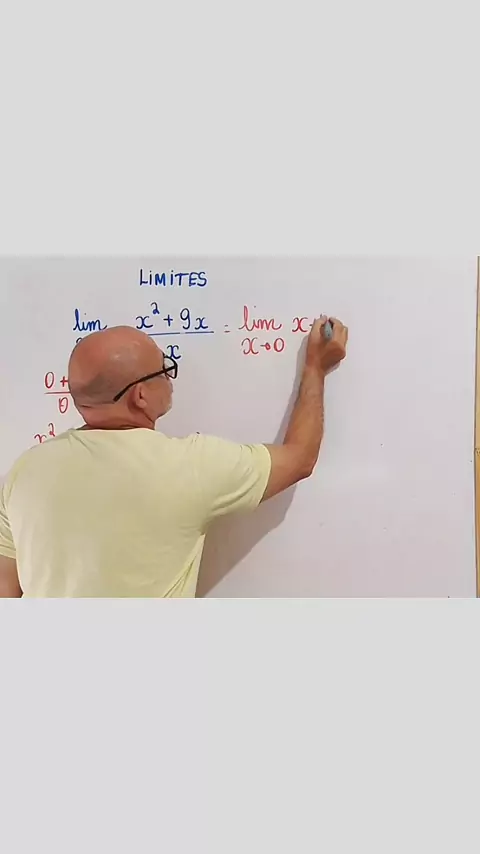 LIMITES
lim x² + 9x = lim x+
x x→0
0+
0
x²